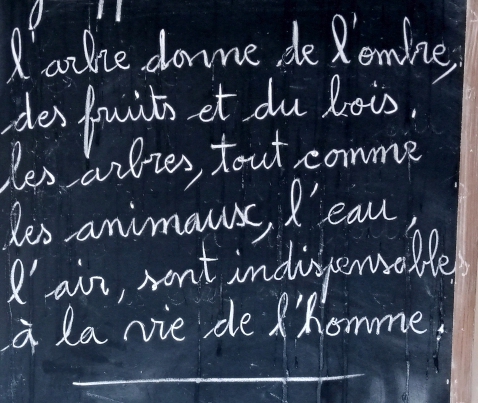 l'arbre donne de l'ombre,
des fruits et du bois.
les arbres, tout comme
les animaux, l'eau,
l'air, sont indispensables
à la vie de l'homme.